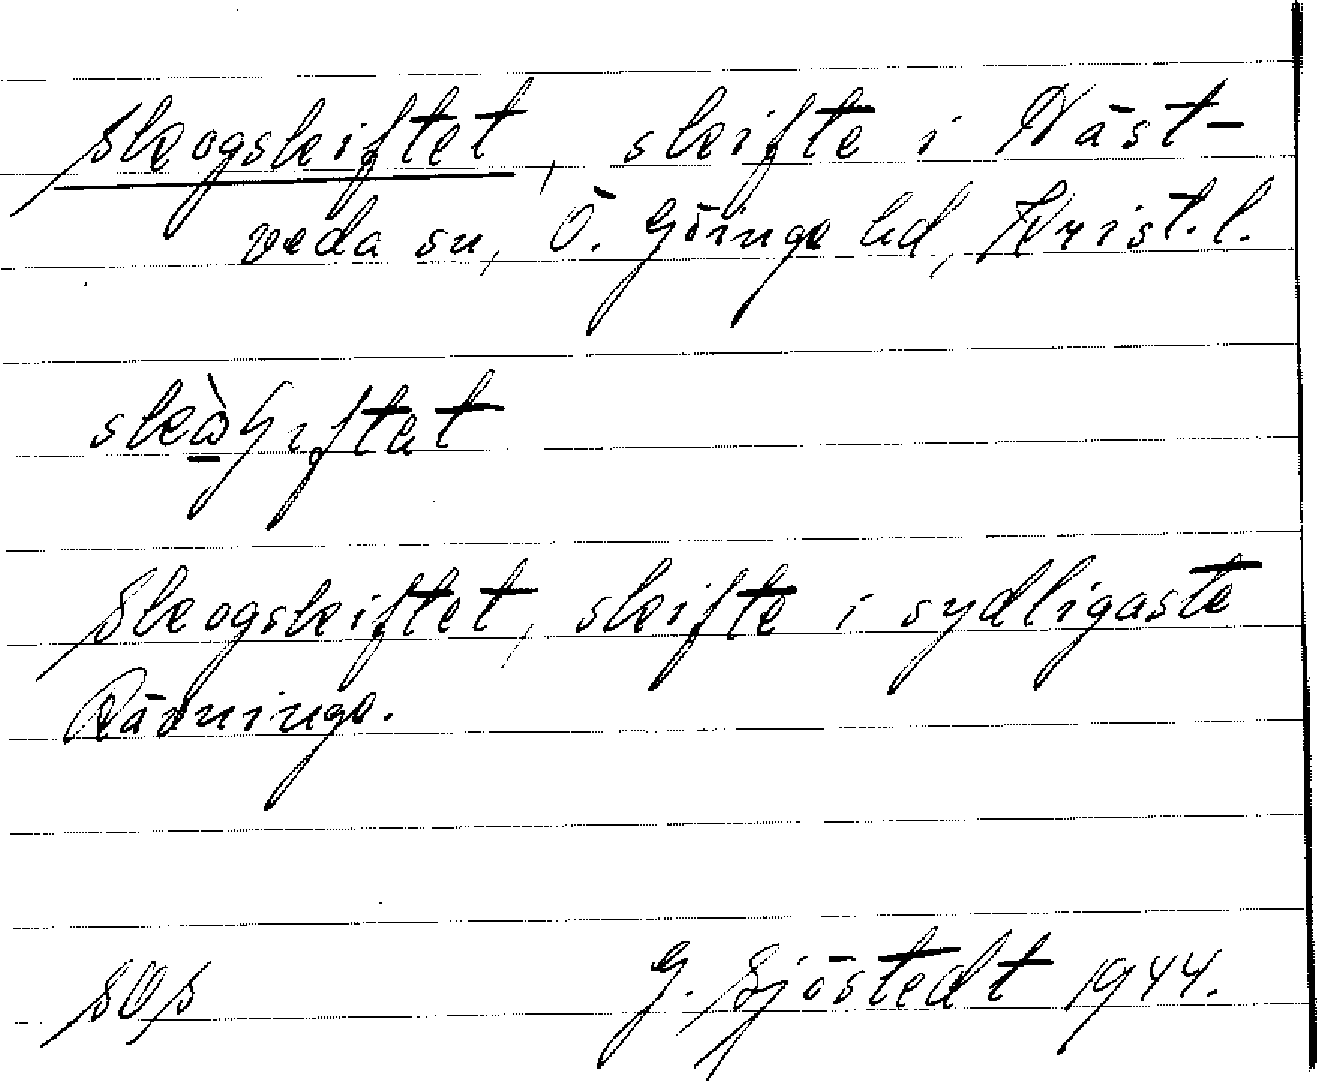 Skogskiftet, skifte i Näst-
veda sn, Ö. Göinge hd, Krist. l.
Skogskiftet, skifte i sydligaste
Rävninge.
G. Sjöstedt 1944.